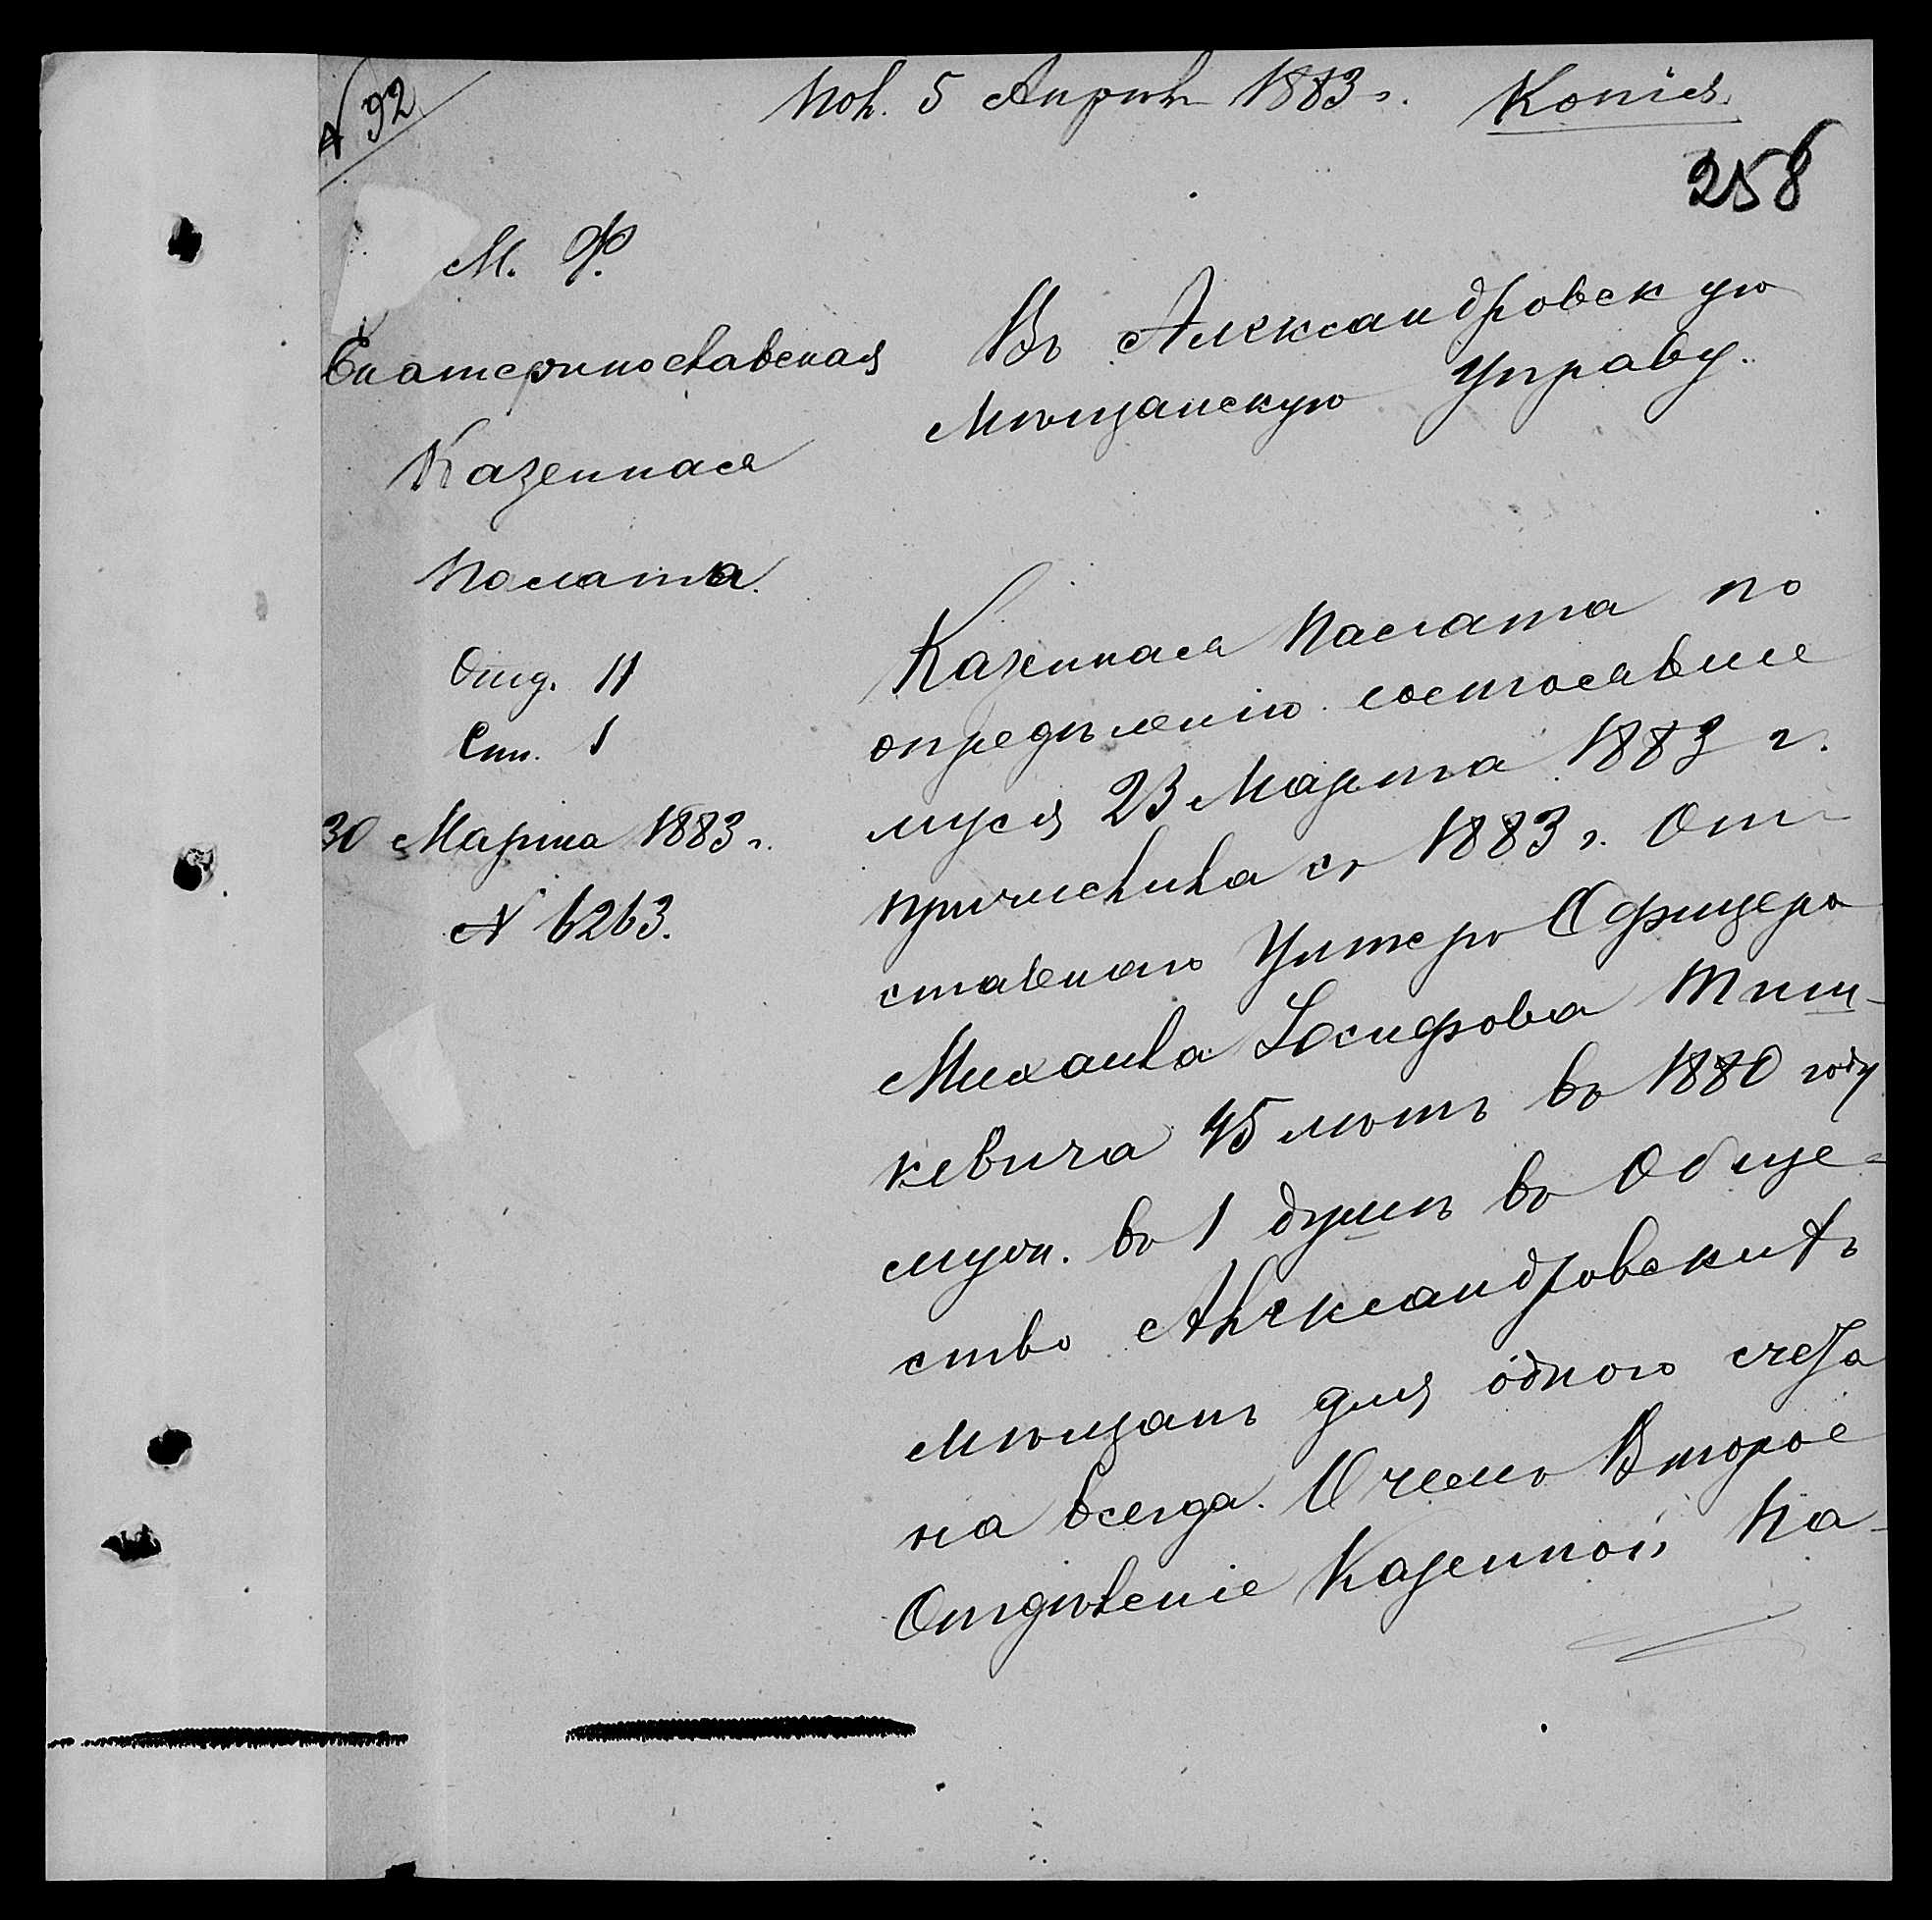 № 92
Пол. 5 Апрѣля 1883 г. Копія
258
М. Ф.
Екатеринославская
Казенная
Полата.
Отд. II
Стл. 1
30 Марта 1883 г.
№ 6263.
Въ Александровскую
Мѣщанскую Управу.
Казенная Палата по
опредѣленію состоявше
муся 23 Марта 1883 г.
причислила съ 1883 г. От-
ставнаго Унтеръ Офицера
Михаила Іосифова Тиш-
кевича 45 лѣтъ въ 1880 году
муж. въ 1 душѣ въ Обще-
ство Александровскихъ
мѣщанъ для одного счета
на всегда. О чемъ Второе
Отдѣленіе Казенной Па-